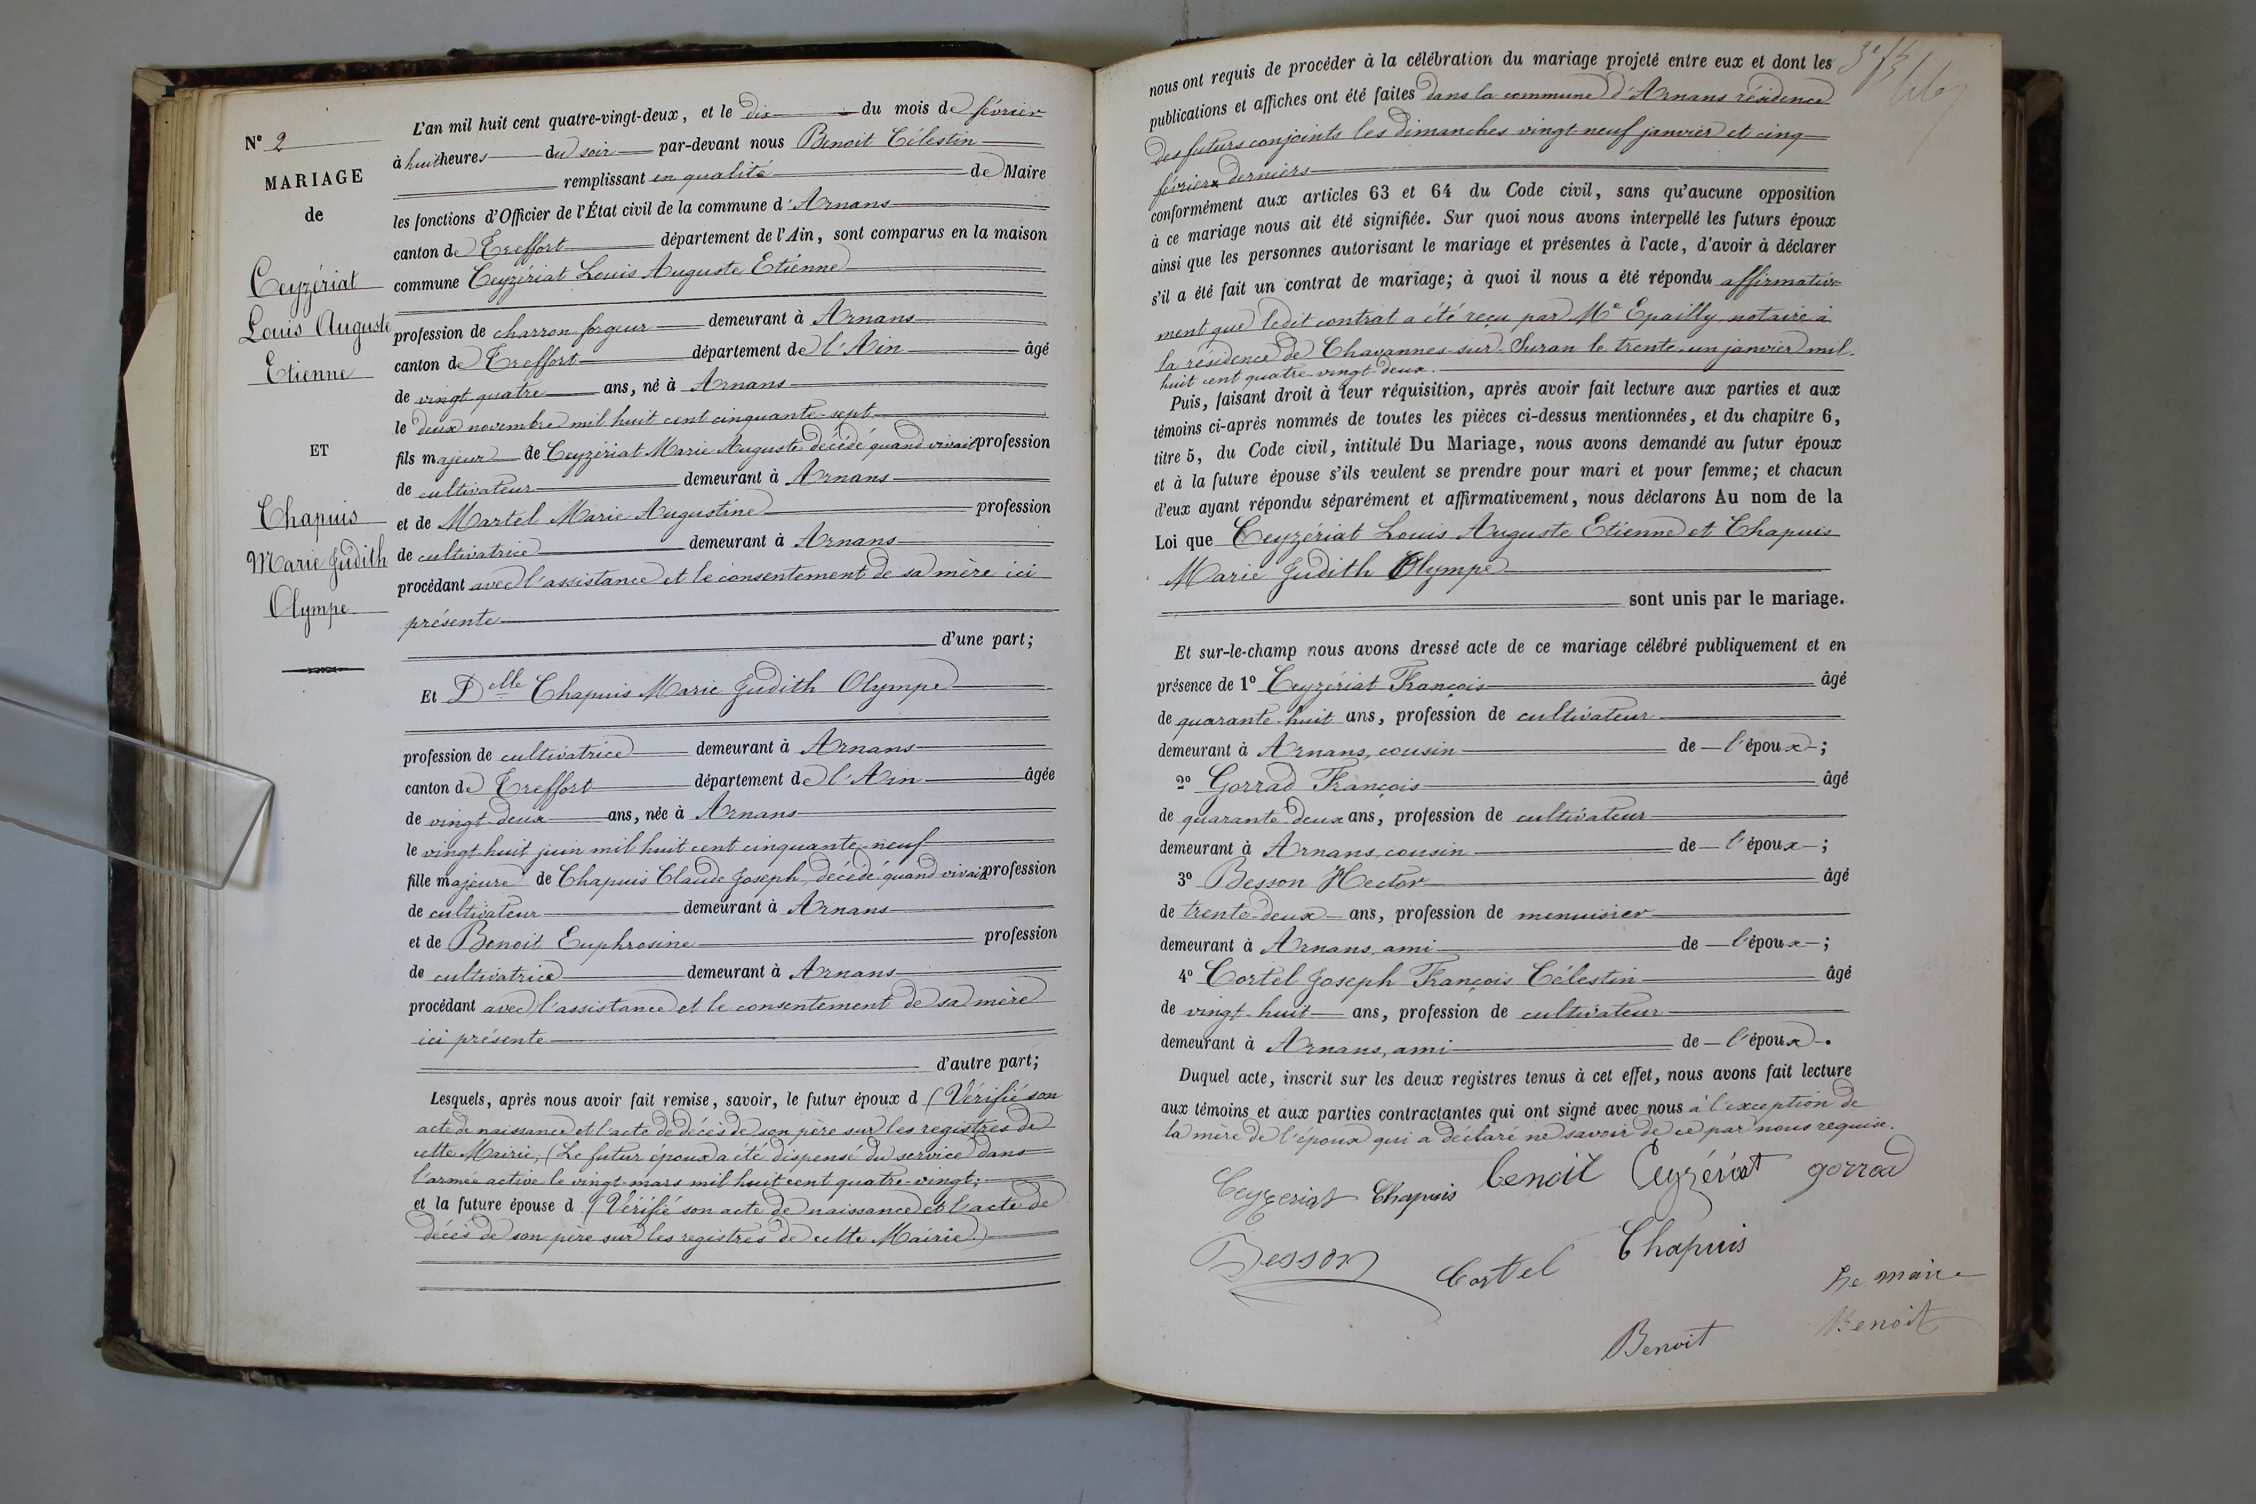 N° 2
MARIAGE
de
Ceyzériat
Louis Auguste
Etienne
ET
Chapuis
Marie Judith
Olympe
L'an mil huit cent quatre-vingt-deux, et le dix du mois de février
à huit heures du soir par-devant nous Benoit Célestin
remplissant en qualité de Maire
les fonctions d'Officier de l'État civil de la commune d'Arnans
canton de Treffort département de l'Ain, sont comparus en la maison
commune Ceyzériat Louis Auguste Etienne
profession de charron forgeur demeurant à Arnans
canton de Treffort département de l'Ain âgé
de vingt quatre ans, né à Arnans
le deux novembre mil huit cent cinquante-sept
fils majeur de Ceyzériat Marie Auguste décédé quand vivait profession
de cultivateur demeurant à Arnans
et de Martel Marie Augustine profession
de cultivatrice demeurant à Arnans
procédant avec l'assistance et le consentement de sa mère ici
présente
d'une part;
Et Delle Chapuis Marie Judith Olympe
profession de cultivatrice demeurant à Arnans
canton de Treffort département de l'Ain âgée
de vingt-deux ans, née à Arnans
le vingt-huit juin mil huit cent cinquante-neuf
fille majeure de Chapuis Claude Joseph, décédé quand vivait profession
de cultivateur demeurant à Arnans
et de Benoit Euphrosine profession
de cultivatrice demeurant à Arnans
procédant avec l'assistance et le consentement de sa mère
ici présente
d'autre part;
Lesquels, après nous avoir fait remise, savoir, le futur époux d (Vérifié son
acte de naissance et l'acte de décès de son père sur les registres de
cette Mairie, (Le futur époux a été dispensé du service dans
l'armée active le vingt mars mil huit cent quatre-vingt;
et la future épouse d (Vérifié son acte de naissance et l'acte de
décès de son père sur les registres de cette Mairie)
nous ont requis de procéder à la célébration du mariage projeté entre eux et dont les
publications et affiches ont été faites dans la commune d'Arnans résidence
des futurs conjoints les dimanches vingt-neuf janvier et cinq
février derniers
conformément aux articles 63 et 64 du Code civil, sans qu'aucune opposition
à ce mariage nous ait été signifiée. Sur quoi nous avons interpellé les futurs époux
ainsi que les personnes autorisant le mariage et présentes à l'acte, d'avoir à déclarer
s'il a été fait un contrat de mariage; à quoi il nous a été répondu affirmative
ment que ledit contrat a été reçu par Me Epailly, notaire à
la résidence de Chavannes-sur-Suran le trente-un janvier mil
huit cent quatre-vingt-deux.
Puis, faisant droit à leur réquisition, après avoir fait lecture aux parties et aux
témoins ci-après nommés de toutes les pièces ci-dessus mentionnées, et du chapitre 6,
titre 5, du Code civil, intitulé Du Mariage, nous avons demandé au futur époux
et à la future épouse s'ils veulent se prendre pour mari et pour femme; et chacun
d'eux ayant répondu séparément et affirmativement, nous déclarons Au nom de la
Loi que Ceyzériat Louis Auguste Etienne et Chapuis
Marie Judith Olympe
sont unis par le mariage.
Et sur-le-champ nous avons dressé acte de ce mariage célébré publiquement et en
présence de 1° Ceyzériat François âgé
de quarante-huit ans, profession de cultivateur
demeurant à Arnans, cousin de l'époux;
2° Gorrad François âgé
de quarante deux ans, profession de cultivateur
demeurant à Arnans, cousin de l'époux;
3° Besson Hector âgé
de trente-deux ans, profession de menuisier
demeurant à Arnans, ami de l'époux;
4° Cortel Joseph François Célestin âgé
de vingt-huit ans, profession de cultivateur
demeurant à Arnans, ami de l'époux.
Duquel acte, inscrit sur les deux registres tenus à cet effet, nous avons fait lecture
aux témoins et aux parties contractantes qui ont signé avec nous à l'exception de
la mère de l'époux qui a déclaré ne savoir de ce par nous requise.
Ceyzeriat Chapuis benoit Ceyzériat gorrad
Besson Cortel Chapuis
Le maire
Benoit Benoit